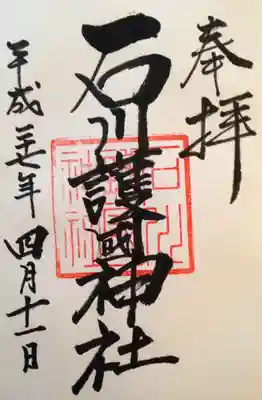 奉拝
石川護國神社
平成二十七年四月十一日